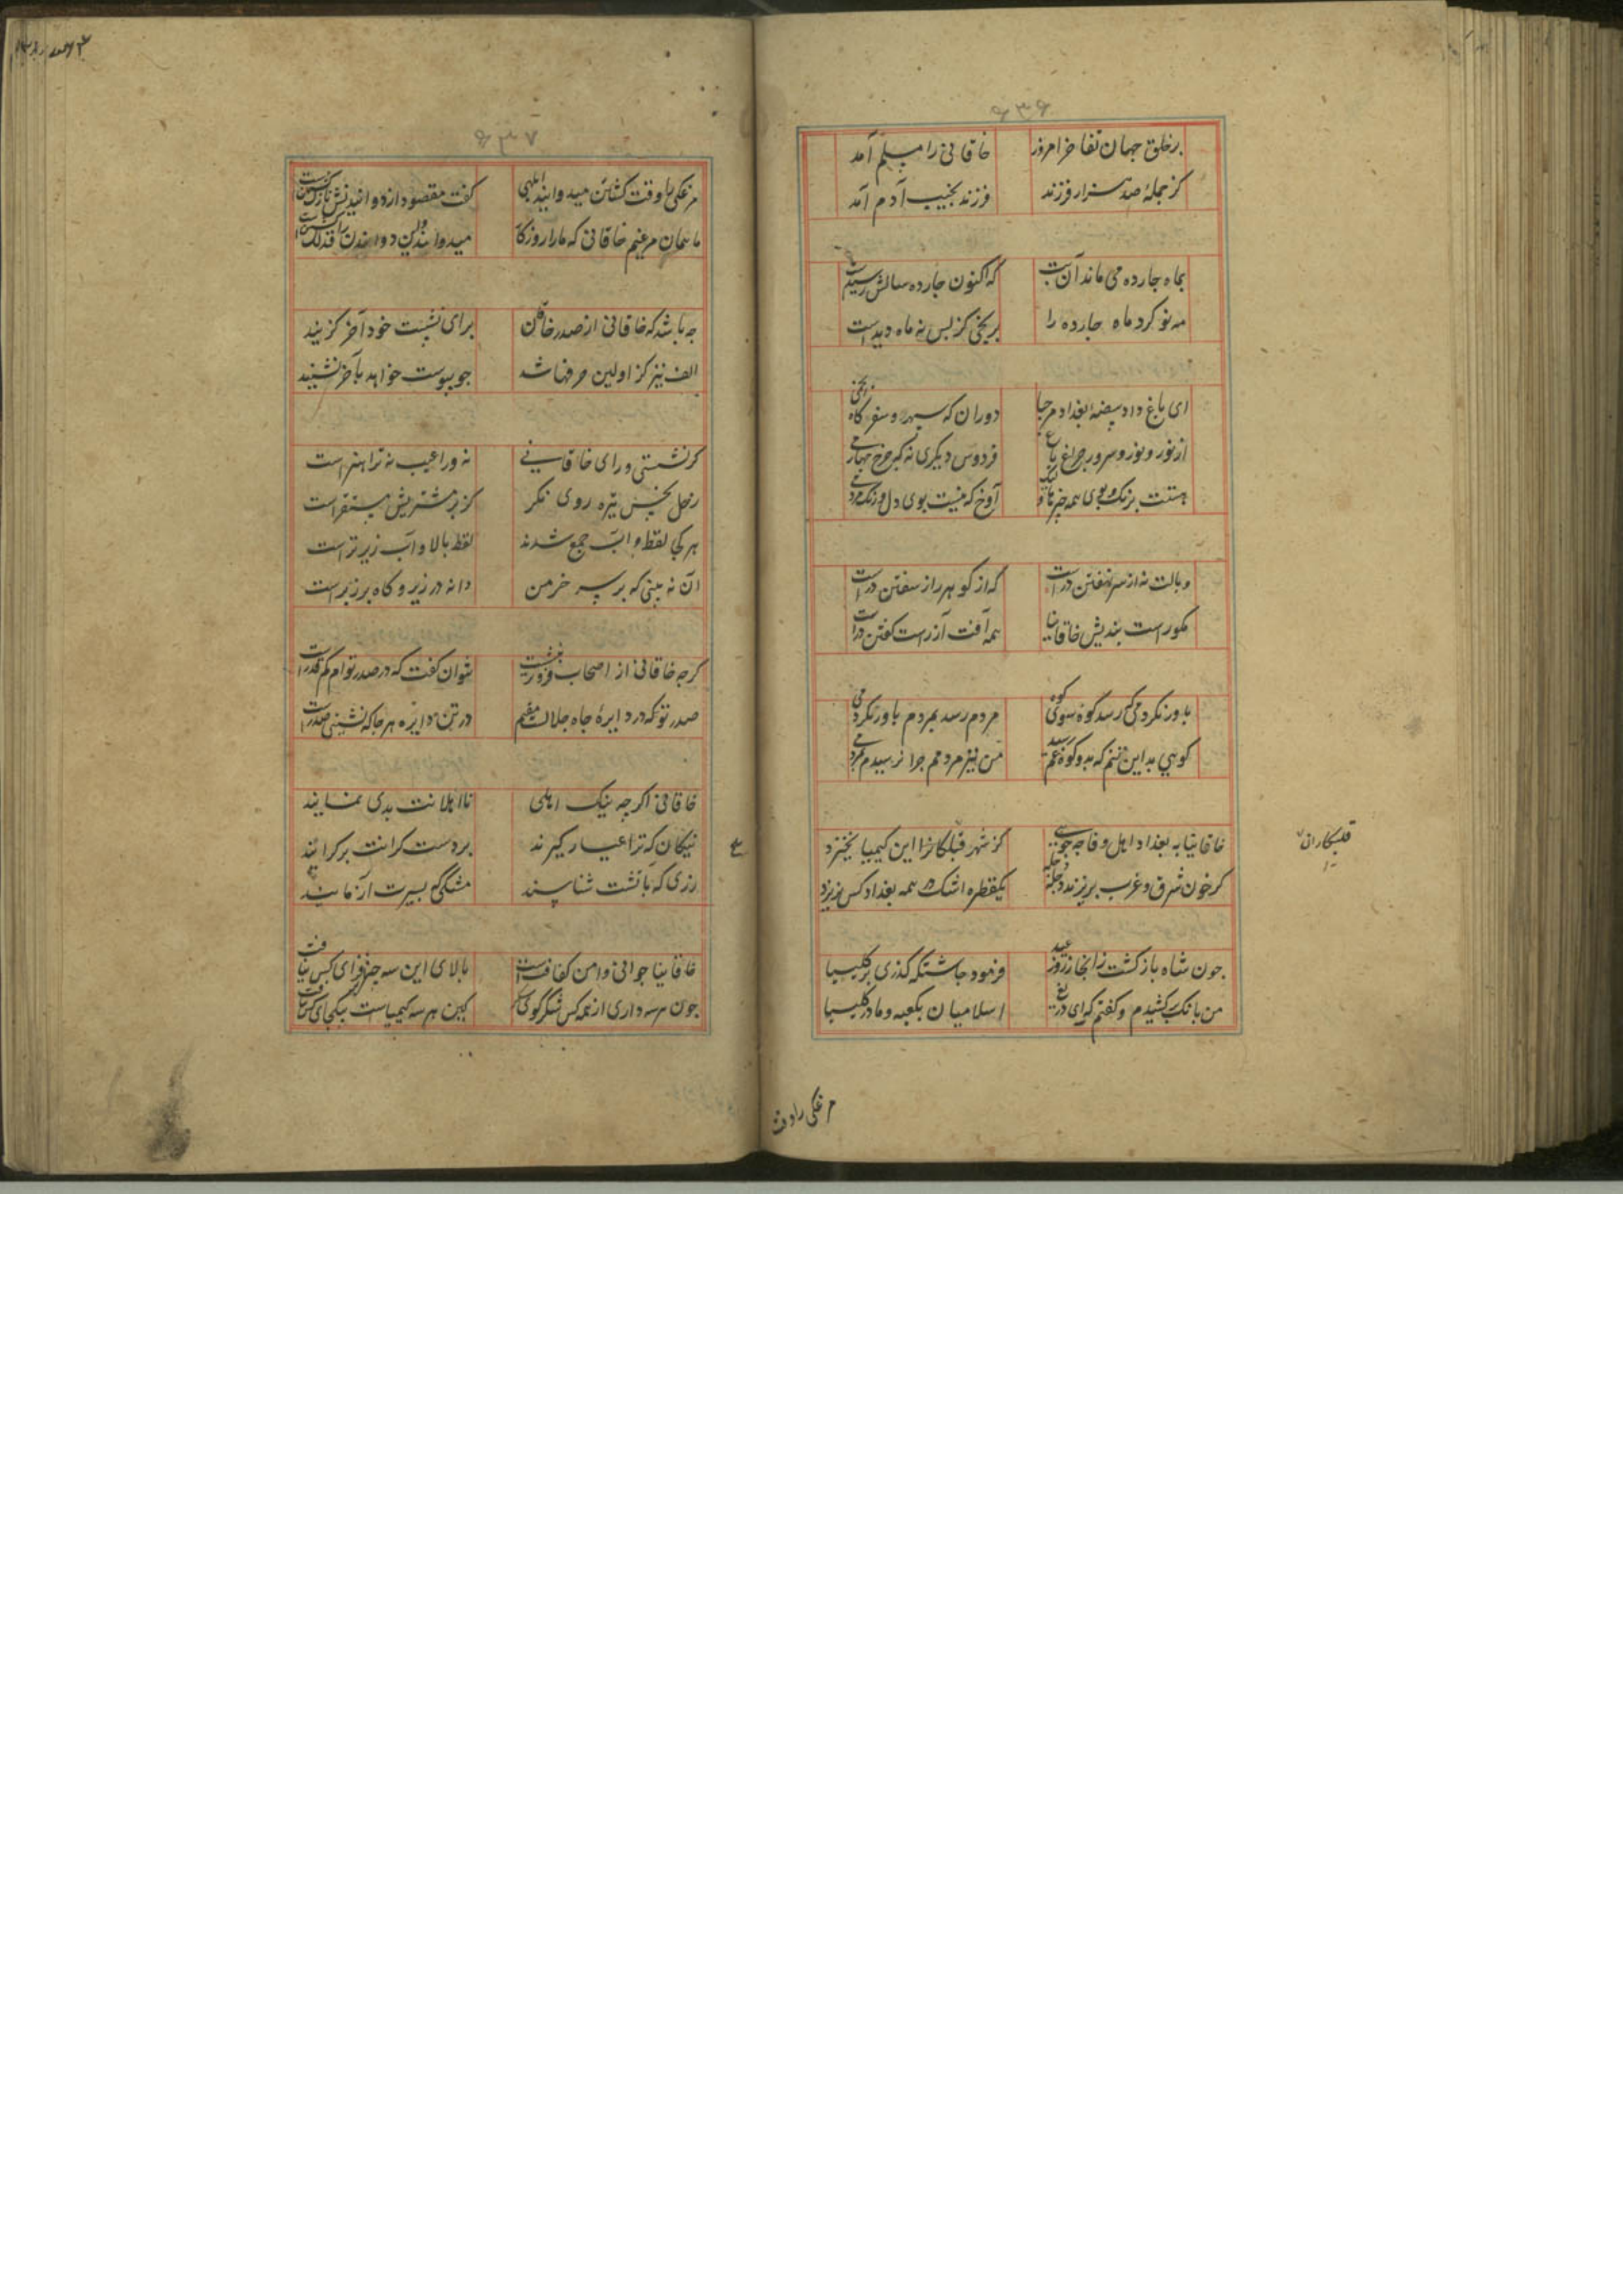 ۶۳۶
برخلق جهان تفاخر امروز خاقانی را مسلم آمد
کز جملهٔ صد هزار فرزند فرزند نجیب آدم آمد
بماه چارده می ماند آن بت که اکنون چارده سالش رسیدست
مه نو کرد ماه چارده را کز بس نه ماه دیدست
ای باغ داد بغداد مرحبا دوران که
از نور و سرور چراغ باغ فردوس دیگری نه
هستت برنک و بوی همه آوخ که نیست بوی دل و رنک مردمی
وبالت نه از سر نهفتن درست که از کوهر راز سفتن درست
مکو راست بندیش خاقانیا همه آفت از راست کفتن درست
باور نکردمی که رسد کوه سوی کوه مردم رسد بمردم باور نکردمی
کوهی بد این تنم که بدو کوه غم رسید من نیز مردمم چرا نرسیدم بمردمی
خاقانیا به بغداد اهل وفا چه جویی کز شهر قلبکاران این کیمیا نخیزد
کر خون شرق و غرب بریزند دجله دجله یکقطره اشک همه بغداد کس نریزد
قلبکاران
چون شاه باز کشت ز ابخاز روز عید فرمود چاشتکه کذری بر کلیسیا
من بانک برکشیدم و کفتم که ای دریغ اسلامیان بکعبه و ما در کلیسیا
مرغکی را وقت
۶۳۷
مرغکی را وقت کشتن میدوانید ابلهی کفت مقصود از دوانیدنش نازک کشتن است
ما همان مرغیم خاقانی که ما را روزکار میدواند وین دواندن را فذلک کشتن است
چه باشد که خاقانی از صدر خاقان برای نشست خود آخر کزیند
الف نیز کز اولین حرفها شد چو پیوست خواهد بآخر نشیند
کر نشستی ورای خاقانی نه ورا عیب نه ترا هنر است
زحل نحس تیره روی نکر کز بر مشتریش مستقر است
هر کجا نفط و آب جمع شدند نفط بالا و آب زیرتر است
آن نه بینی که بر سر خرمن دانه در زیر و کاه بر زبر است
کرچه خاقانی از اصحاب فروتر بنشست نتوان کفت که در صدر تو ام کم قدر است
صدر تو دایرهٔ جاه و جلالست مقیم در تن دایره هر جا که نشینی صدر است
خاقانی اکر چه نیک اهلی نااهلانت بدی نمایند
نیکان که ترا عیار کیرند بر دست کرانت برکرایند
زری که بآتشت شناسند مشکی که بسیرت آزمایند
خاقانیا جوانی و امن و کفاف هست بالای این سه چیز فزای کس نیافت
چون هر سه داری از همه کس شکر کوی کین هر سه کیمیاست بیکجای کس نیافت